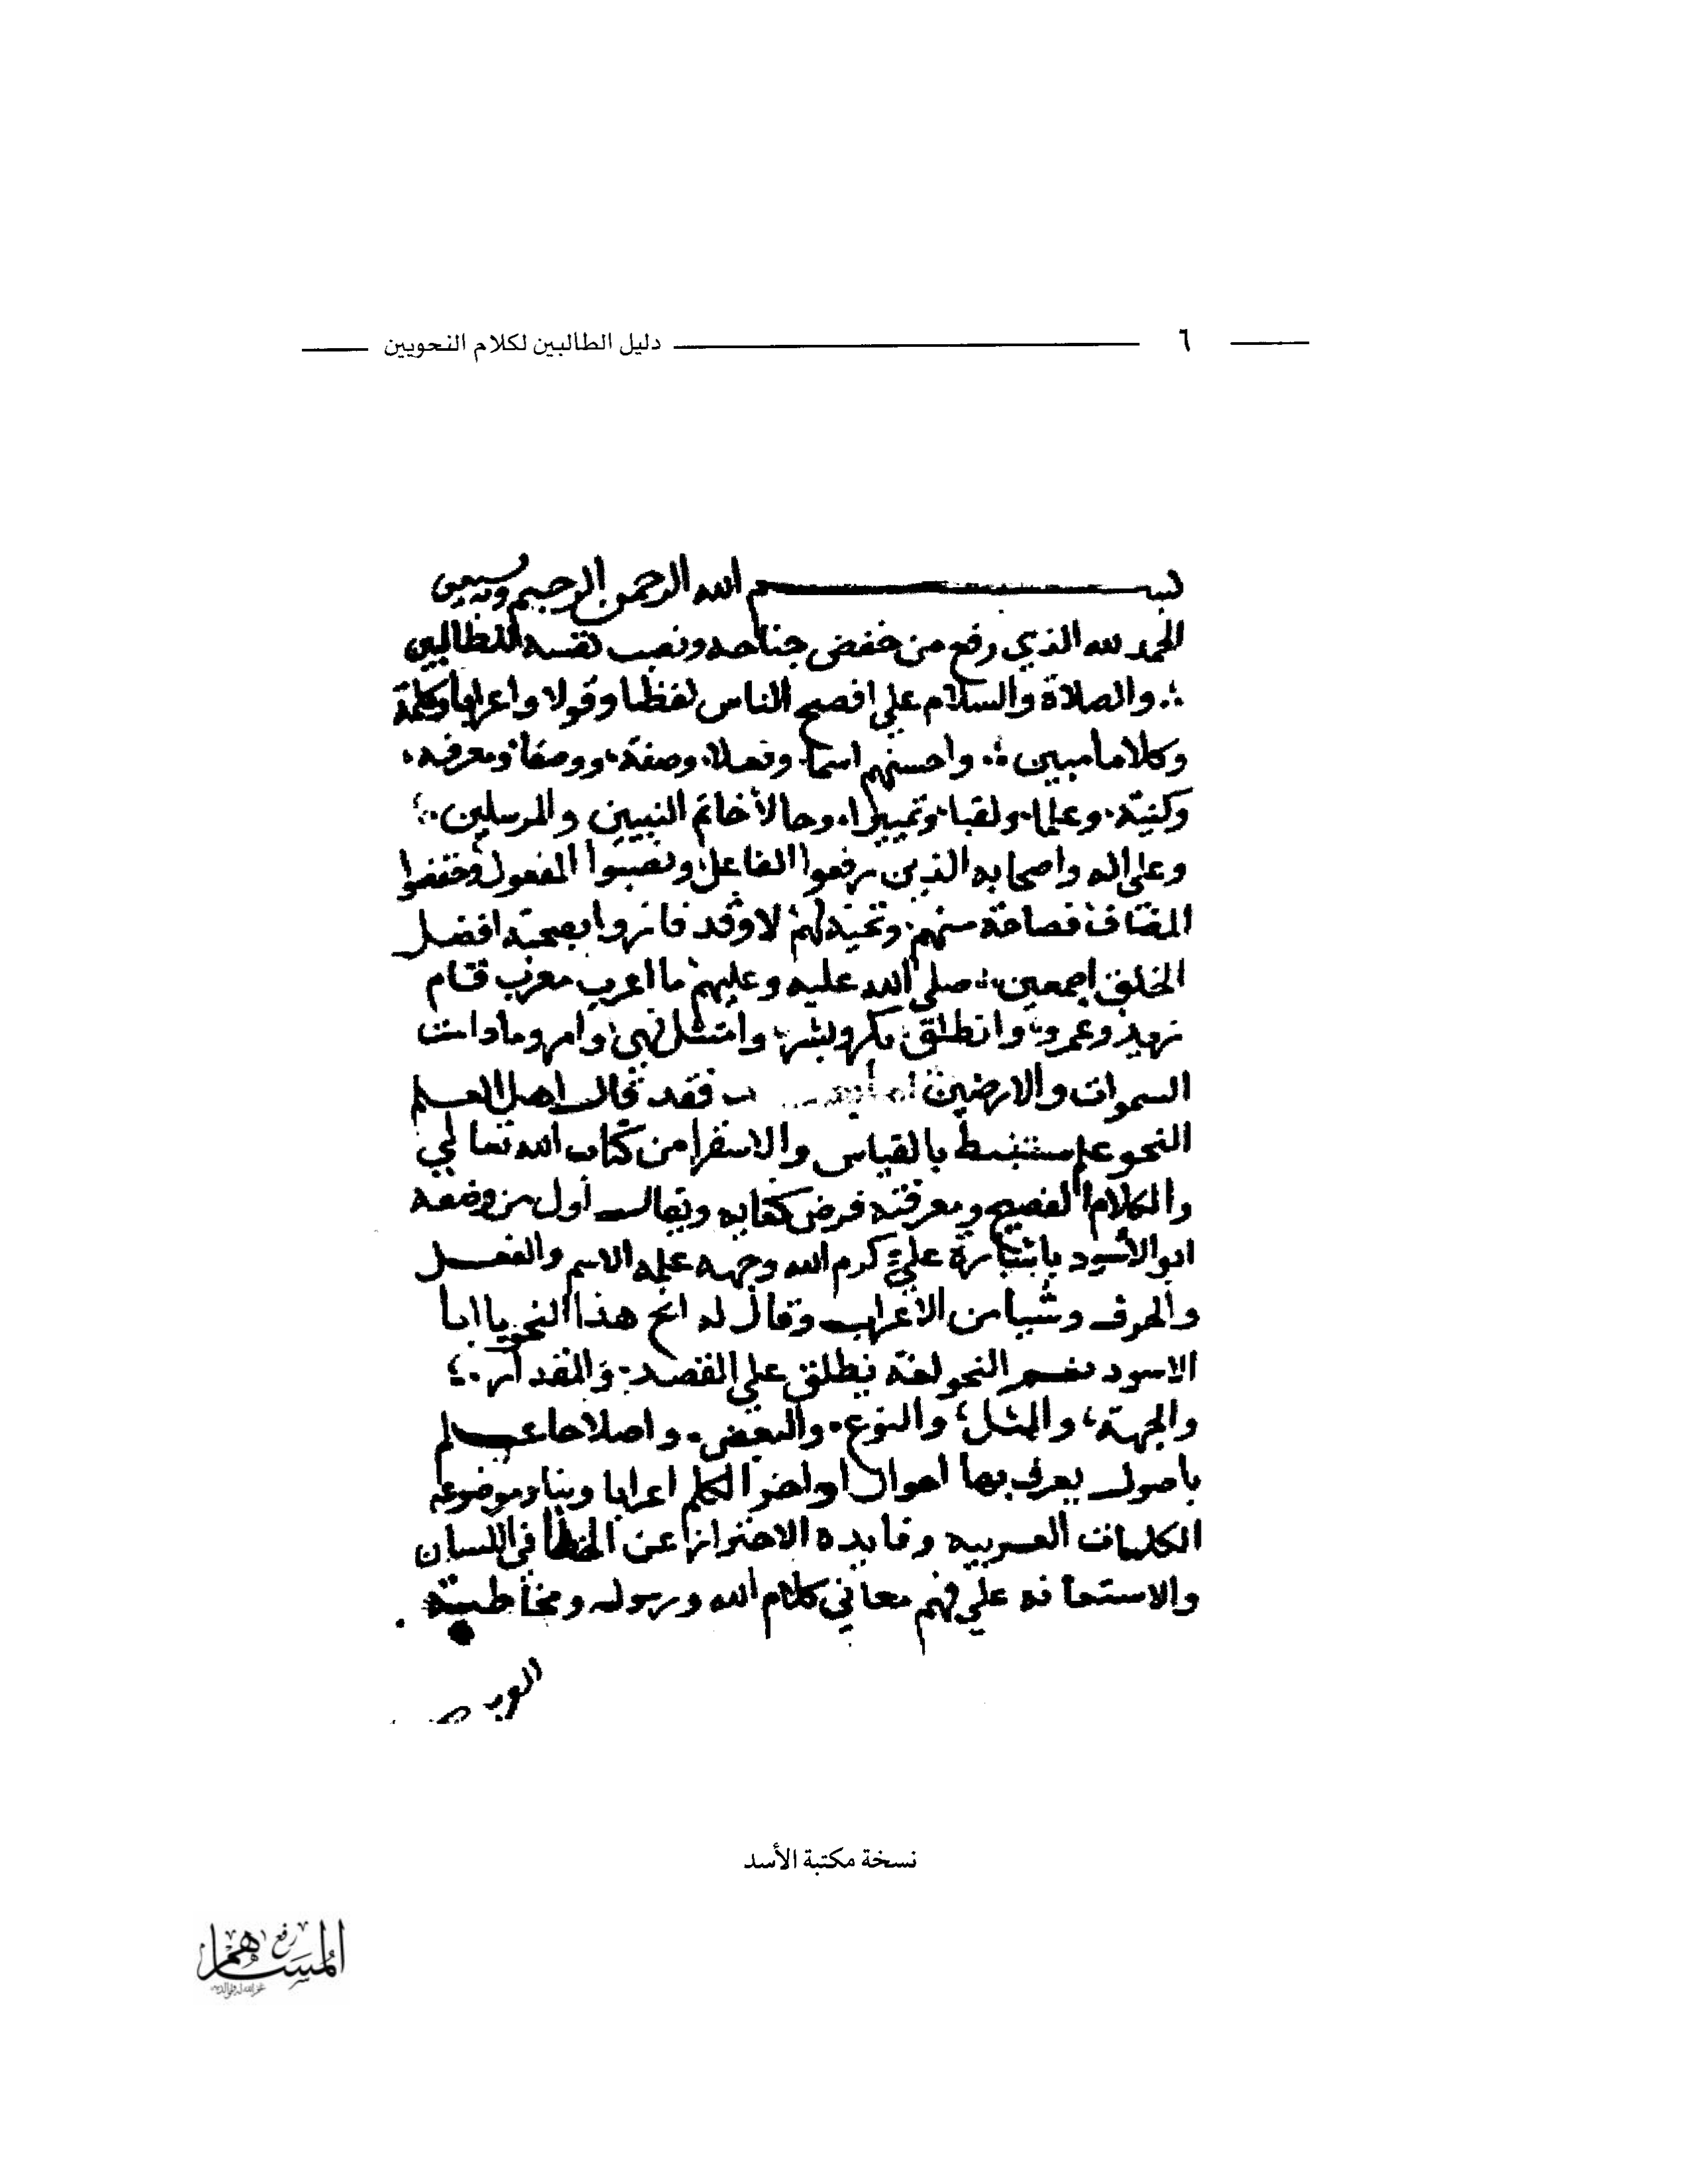 ٦ دليل الطالبين لكلام النحويين
بسم الله الرحمن الرحيم وبه نستعين
الحمد لله الذي رفع من خفض جناحه ونصب نفسه للطالبين
والصلاة والسلام علي افصح الناس لفظا وقولا واعرابا وكلمة
وكلاما مبين واحسنهم اسما وفعلا وصفة ووصفا ومعرفه
وكنية وعلما ولقبا وتمييزا وحالا خاتم النبيين والمرسلين
وعلى اله واصحابه الذين رفعوا الفاعل ونصبوا المفعول وخفضوا
المضاف فصاحة منهم لا وقد فازوا بصحبة افضل
الخلق اجمعين صلي الله عليه وعليهم ما اعرب معرب قام
زيد وعمرو وانطلق بكر وبشر وامتثل نهي وامر وما دامت
السموات والارضين فقد قال اهل العلم
النحو علم مستنبط بالقياس والاستقرا من كتاب الله تعالي
والكلام الفصيح ومعرفته فرض كفايه ويقال أول من وضعه
ابو الأسود باشارة علي كرم الله وجهه علمه الاسم والفعل
والحرف وشيا من الاعراب وقال له انح هذا النحو يا ابا
الاسود النحو لغة يطلق علي القصد والمقدار
والجهة، والمثل؛ والنوع. والبعض. واصلاحا علم
باصول يعرف بها احوال اواخر الكلم اعرابا وبناء وموضوعه
الكلمات العربيه وفايده الاحتراز عن الخطأ في اللسان
والاستعانه علي فهم معاني كلام الله ورسوله ومخاطبة
نسخة مكتبة الأسد
المساهم